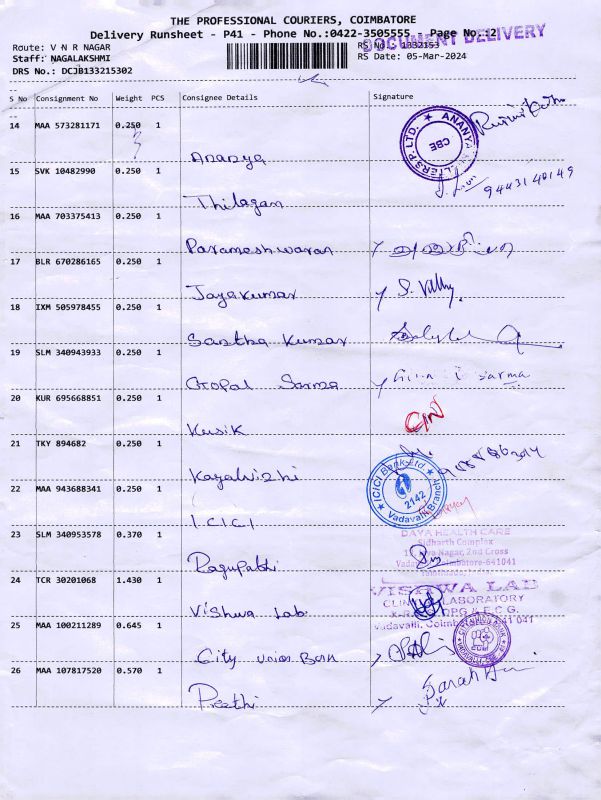 THE PROFESSIONAL COURIERS, COIMBATORE
Delivery Runsheet - P41 - Phone No.:0422-3505555 Page No.:2
DOCUMENT DELIVERY
Route: V N R NAGAR
RS No.: 1332153
Staff: NAGALAKSHMI
RS Date: 05-Mar-2024
DRS No.: DCJB133215302
S No Consignment No Weight PCS Consignee Details Signature
14 MAA 573281171 0.250 1
Ananya
ANANYA P. LTD. CBE
15 SVK 10482990 0.250 1
Thilagam
9443140149
16 MAA 703375413 0.250 1
Parameshwaran
17 BLR 670286165 0.250 1
Jayakumar
S. Vathy
18 IXM 505978455 0.250 1
Sastha Kumar
19 SLM 340943933 0.250 1
Gopal Sarma
Sarma
20 KUR 695668851 0.250 1
Kusik
21 TKY 894682 0.250 1
Kayalvizhi
22 MAA 943688341 0.250 1
I.C.I.C.I
ICICI Bank Ltd
2142
Vadavalli Branch
23 SLM 340953578 0.370 1
Ragupathi
DAYA HEALTH CARE
Sidharth Complex
Nagar, 2nd Cross
Coimbatore-641041
24 TCR 30201068 1.430 1
Vishwa Lab
VISHWA LAB
CLINICAL LABORATORY
E.C.G.
Vadavalli, Coimbatore 641 041
25 MAA 100211289 0.645 1
City Union Bank
26 MAA 107817520 0.570 1
Preethi